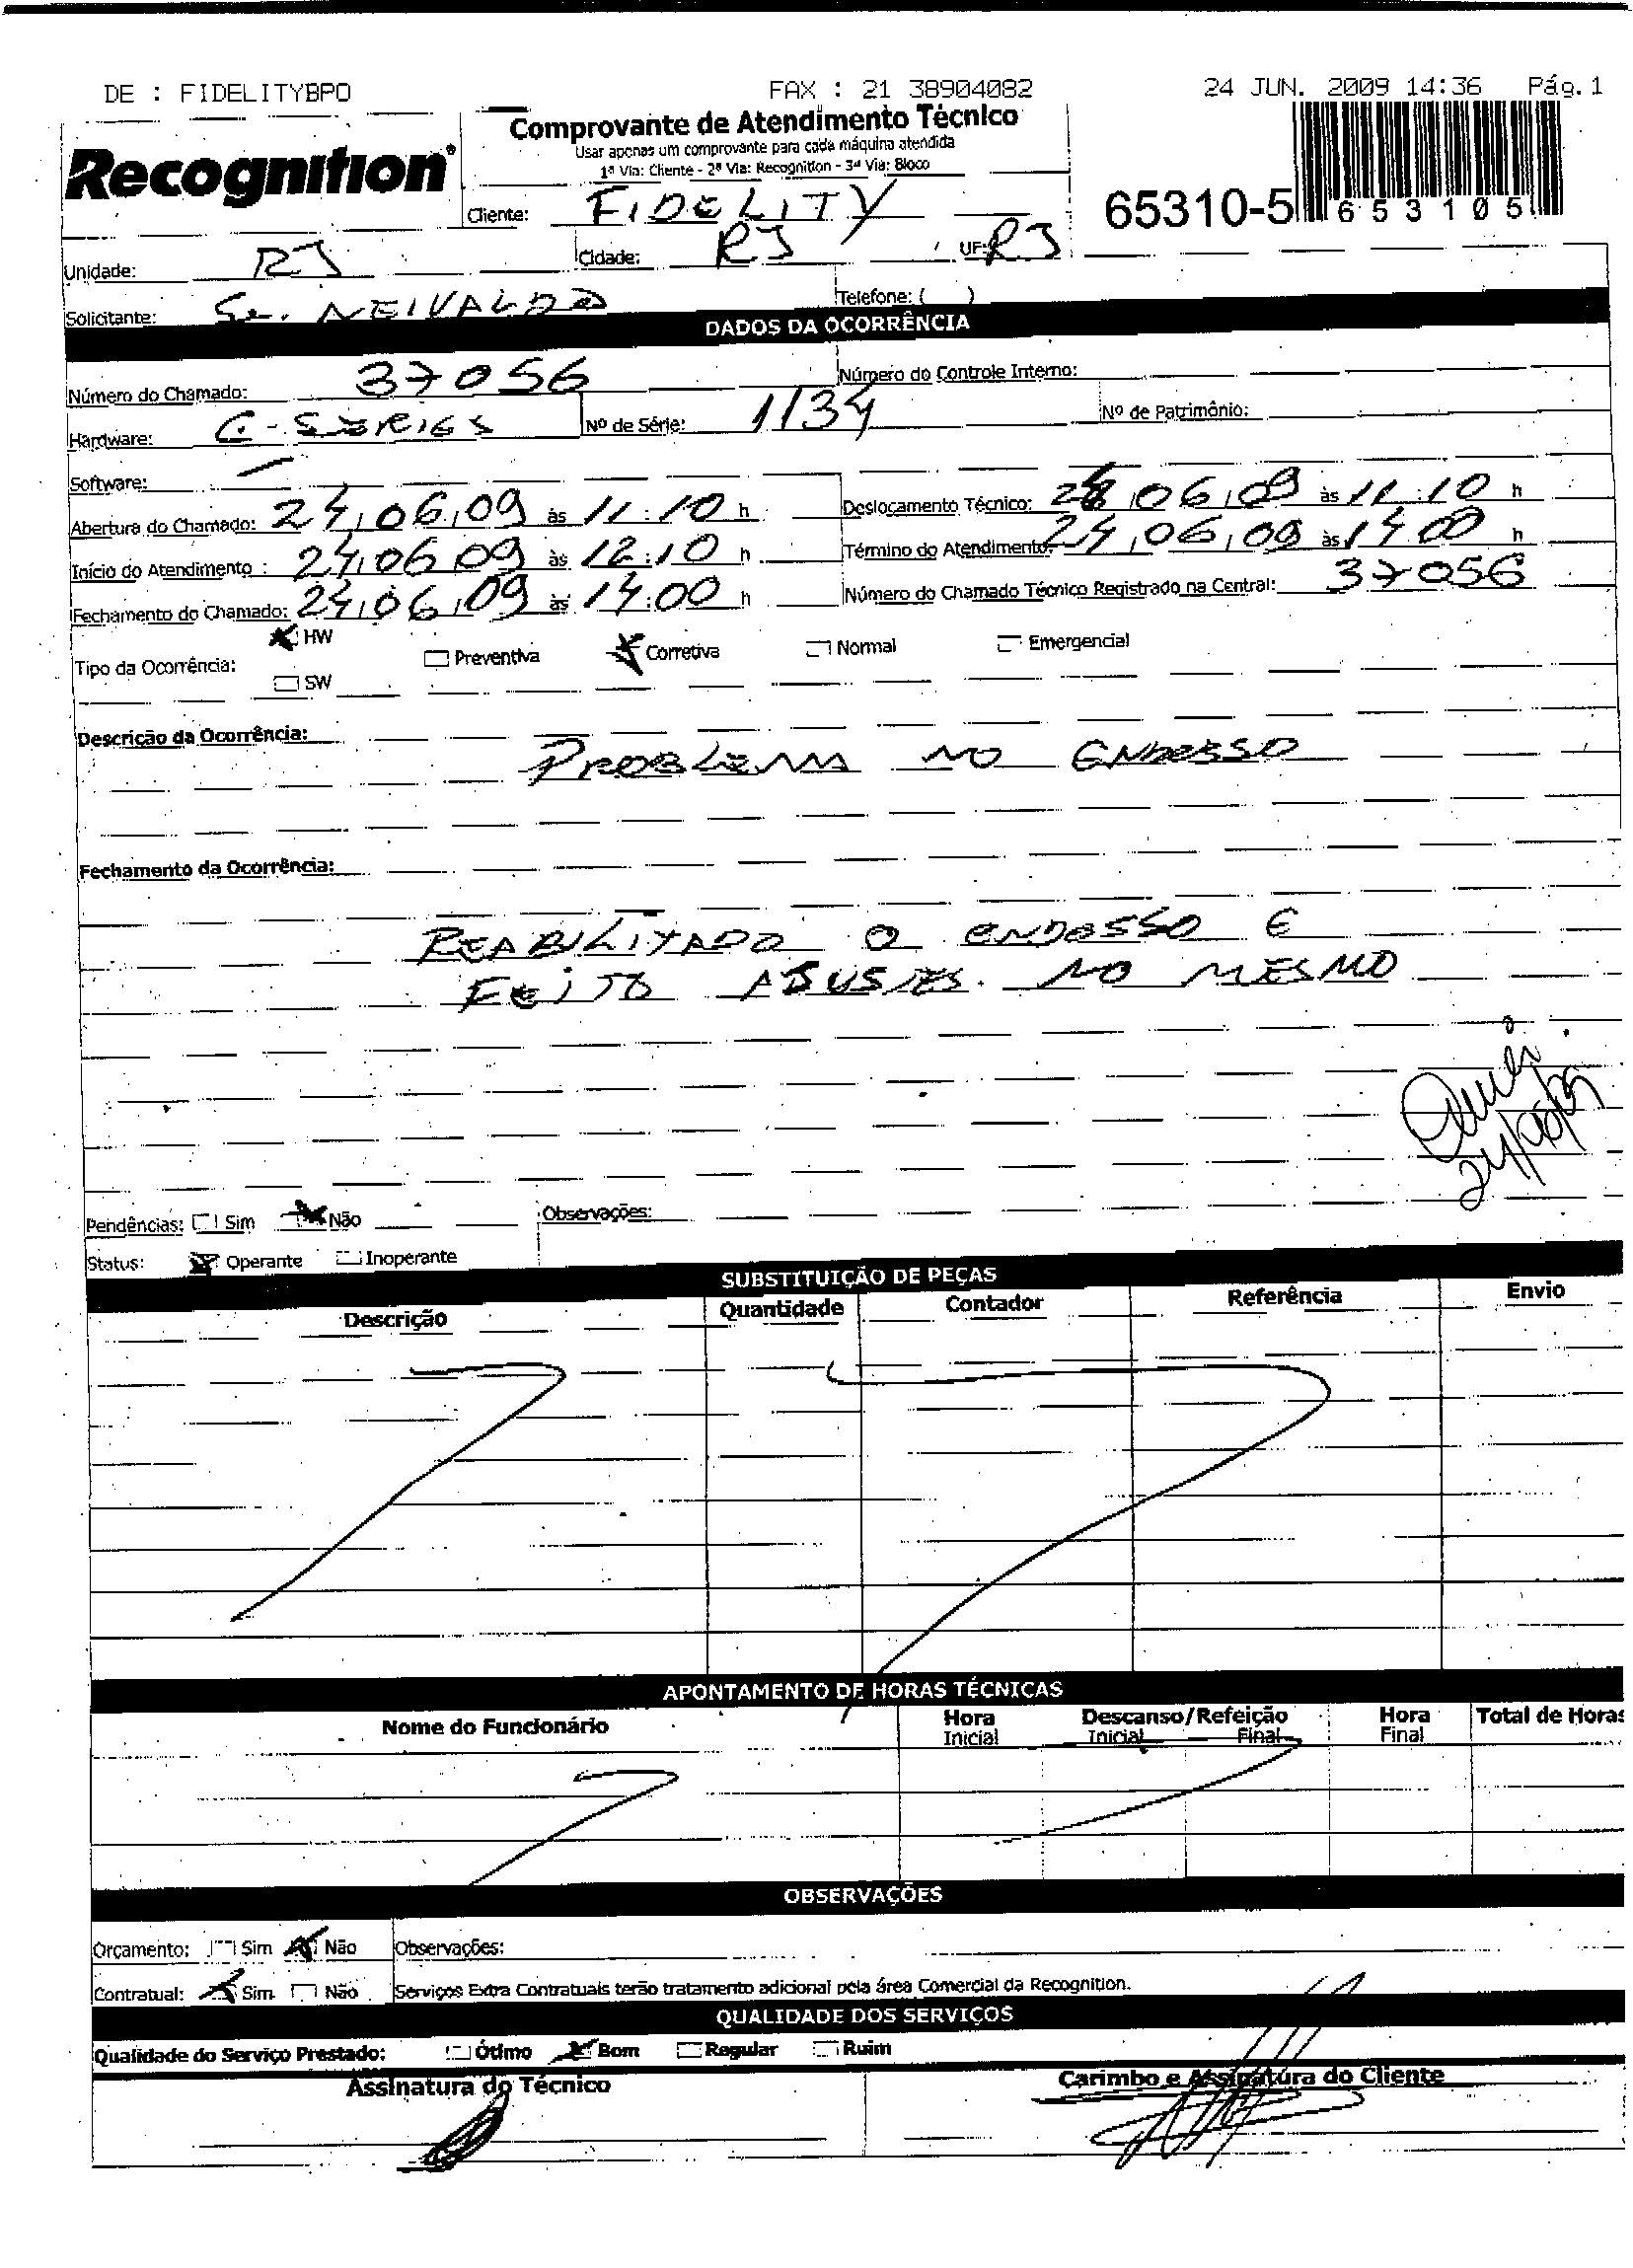 DE : FIDELITYBPO FAX : 21 38904082 24 JUN. 2009 14:36 Pág. 1
Recognition®
Comprovante de Atendimento Técnico
Usar apenas um comprovante para cada máquina atendida
1ª Via: Cliente - 2ª Via: Recognition - 3ª Via: Bloco
65310-5 653105
Cliente: FIDELITY
Unidade: RJ Cidade: RJ UF: RJ
Solicitante: Sr. NEIVALDO Telefone: ( )
DADOS DA OCORRÊNCIA
Número do Chamado: 37056 Número do Controle Interno:
Hardware: C-SERIES Nº de Série: 1134 Nº de Patrimônio:
Software: —
Abertura do Chamado: 24,06,09 às 11:10 h Deslocamento Técnico: 24,06,09 às 11:10 h
Início do Atendimento : 24,06,09 às 12:10 h Término do Atendimento: 24,06,09 às 14:00 h
Fechamento do Chamado: 24,06,09 às 14:00 h Número do Chamado Técnico Registrado na Central: 37056
Tipo da Ocorrência: HW Preventiva Corretiva Normal Emergencial
SW
Descrição da Ocorrência:
PROBLEMA NO ENDOSSO
Fechamento da Ocorrência:
REABILITADO O ENDOSSO E
FEITO AJUSTES. NO MESMO
24/06/09
Pendências: Sim Não Observações:
Status: Operante Inoperante
SUBSTITUIÇÃO DE PEÇAS
Descrição Quantidade Contador Referência Envio
APONTAMENTO DE HORAS TÉCNICAS
Nome do Funcionário Hora Inicial Descanso/Refeição Inicial Final Hora Final Total de Horas
OBSERVAÇÕES
Orçamento: Sim Não Observações:
Contratual: Sim Não Serviços Extra Contratuais terão tratamento adicional pela área Comercial da Recognition.
QUALIDADE DOS SERVIÇOS
Qualidade do Serviço Prestado: Ótimo Bom Regular Ruim
Assinatura do Técnico Carimbo e Assinatura do Cliente